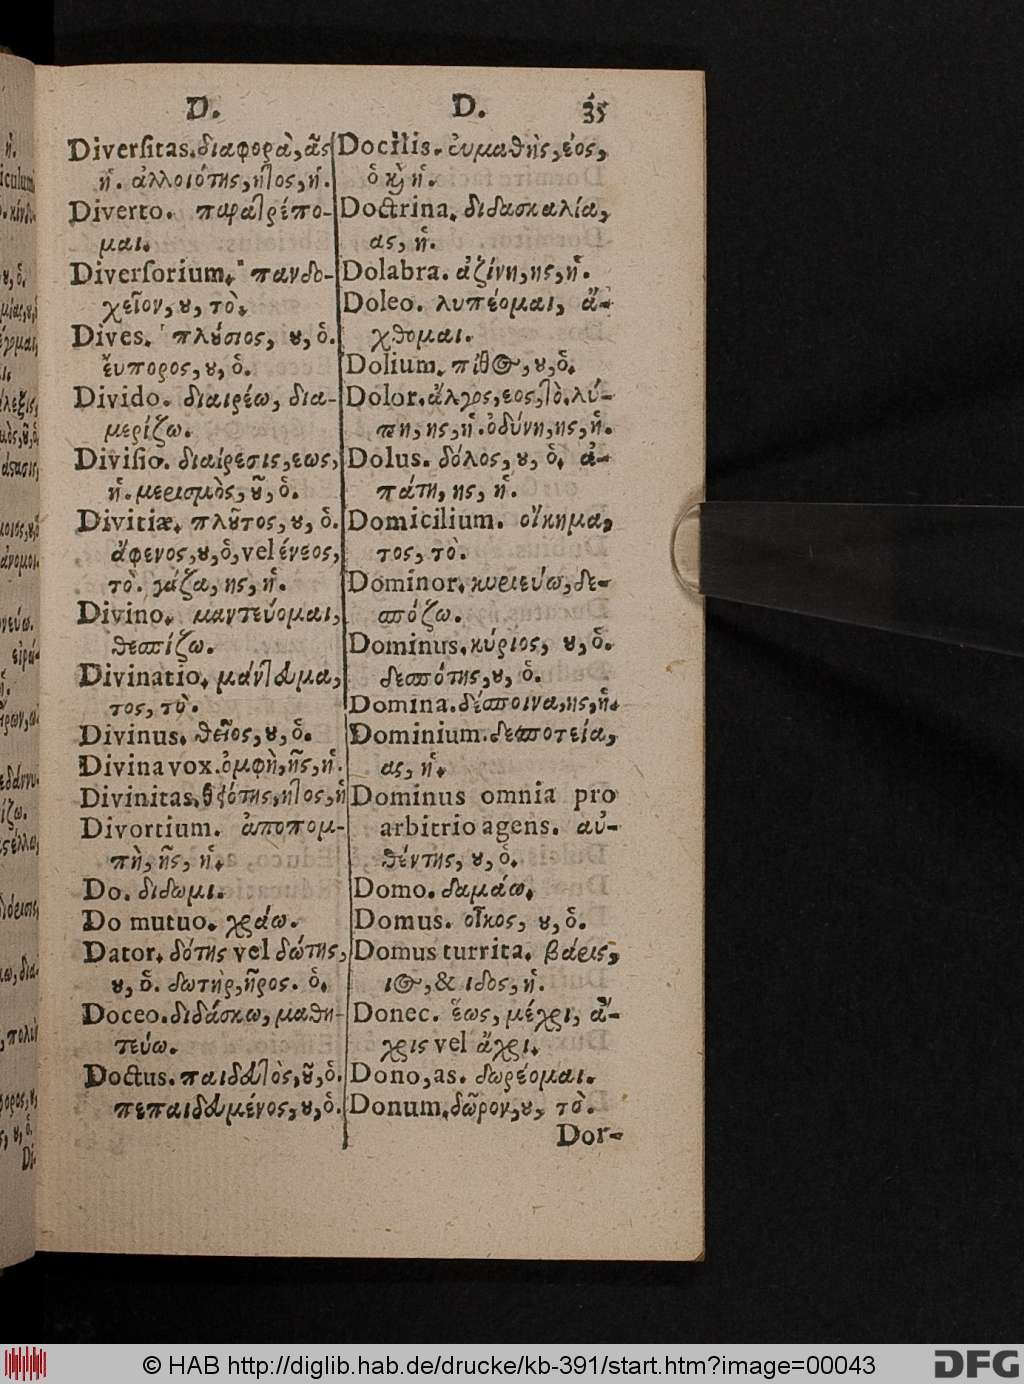 D.
Diversitas. διαφορὰ, ᾶς
ἡ. ἀλλοιότης, ητος, ἡ.
Diverto. παρατρέπο-
μαι.
Diversorium. πανδο-
χεῖον, ȣ, τὸ.
Dives. πλȣ́σιος, ȣ, ὁ.
ἔυπορος, ȣ, ὁ.
Divido. διαιρέω, δια-
μερίζω.
Divisio. διαίρεσις, εως,
ἡ. μερισμὸς, ȣ͂, ὁ.
Divitiæ. πλȣ͂τος, ȣ, ὁ.
ἄφενος, ȣ, ὁ, vel ένεος,
τὸ. γάζα, ης, ἡ.
Divino. μαντεύομαι,
θεσπίζω.
Divinatio. μάντευμα,
τος, τὸ.
Divinus. θεῖος, ȣ, ὁ.
Divina vox. ὀμφὴ, ῆς, ἡ.
Divinitas. θειότης, ητος, ἡ
Divortium. ἀποπομ-
πὴ, ῆς, ἡ.
Do. δίδωμι.
Do mutuo. χράω.
Dator. δότης vel δώτης,
ȣ, ὁ. δωτὴρ, ῆρος. ὁ.
Doceo. διδάσκω, μαθη-
τεύω.
Doctus. παιδευτὸς, ȣ͂, ὁ.
πεπαιδευμένος, ȣ, ὁ.
D. 35
Docilis. ἐυμαθὴς, έος,
ὁ κ̀ ἡ.
Doctrina. διδασκαλία,
ας, ἡ.
Dolabra. ἀξίνη, ης, ἡ.
Doleo. λυπέομαι, ἄ-
χθομαι.
Dolium. πίθος, ȣ, ὁ.
Dolor. ἄλγος, εος, τὸ. λύ-
πη, ης, ἡ. ὀδύνη, ης, ἡ.
Dolus. δόλος, ȣ, ὁ. ἀ-
πάτη, ης, ἡ.
Domicilium. οἴκημα,
τος, τὸ.
Dominor. κυριεύω, δε-
σπόζω.
Dominus. κύριος, ȣ, ὁ.
δεσπότης, ȣ, ὁ.
Domina. δέσποινα, ης, ἡ.
Dominium. δεσποτεία,
ας, ἡ.
Dominus omnia pro
arbitrio agens. αὐ-
θέντης, ȣ, ὁ.
Domo. δαμάω.
Domus. οἶκος, ȣ, ὁ.
Domus turrita. βάρις,
ιος, & ιδος, ἡ.
Donec. ἕως, μέχρι, ἄ-
χρις vel ἄχρι.
Dono, as. δωρέομαι.
Donum. δῶρον, ȣ, τὸ.
Dor-
© HAB http://diglib.hab.de/drucke/kb-391/start.htm?image=00043
DFG